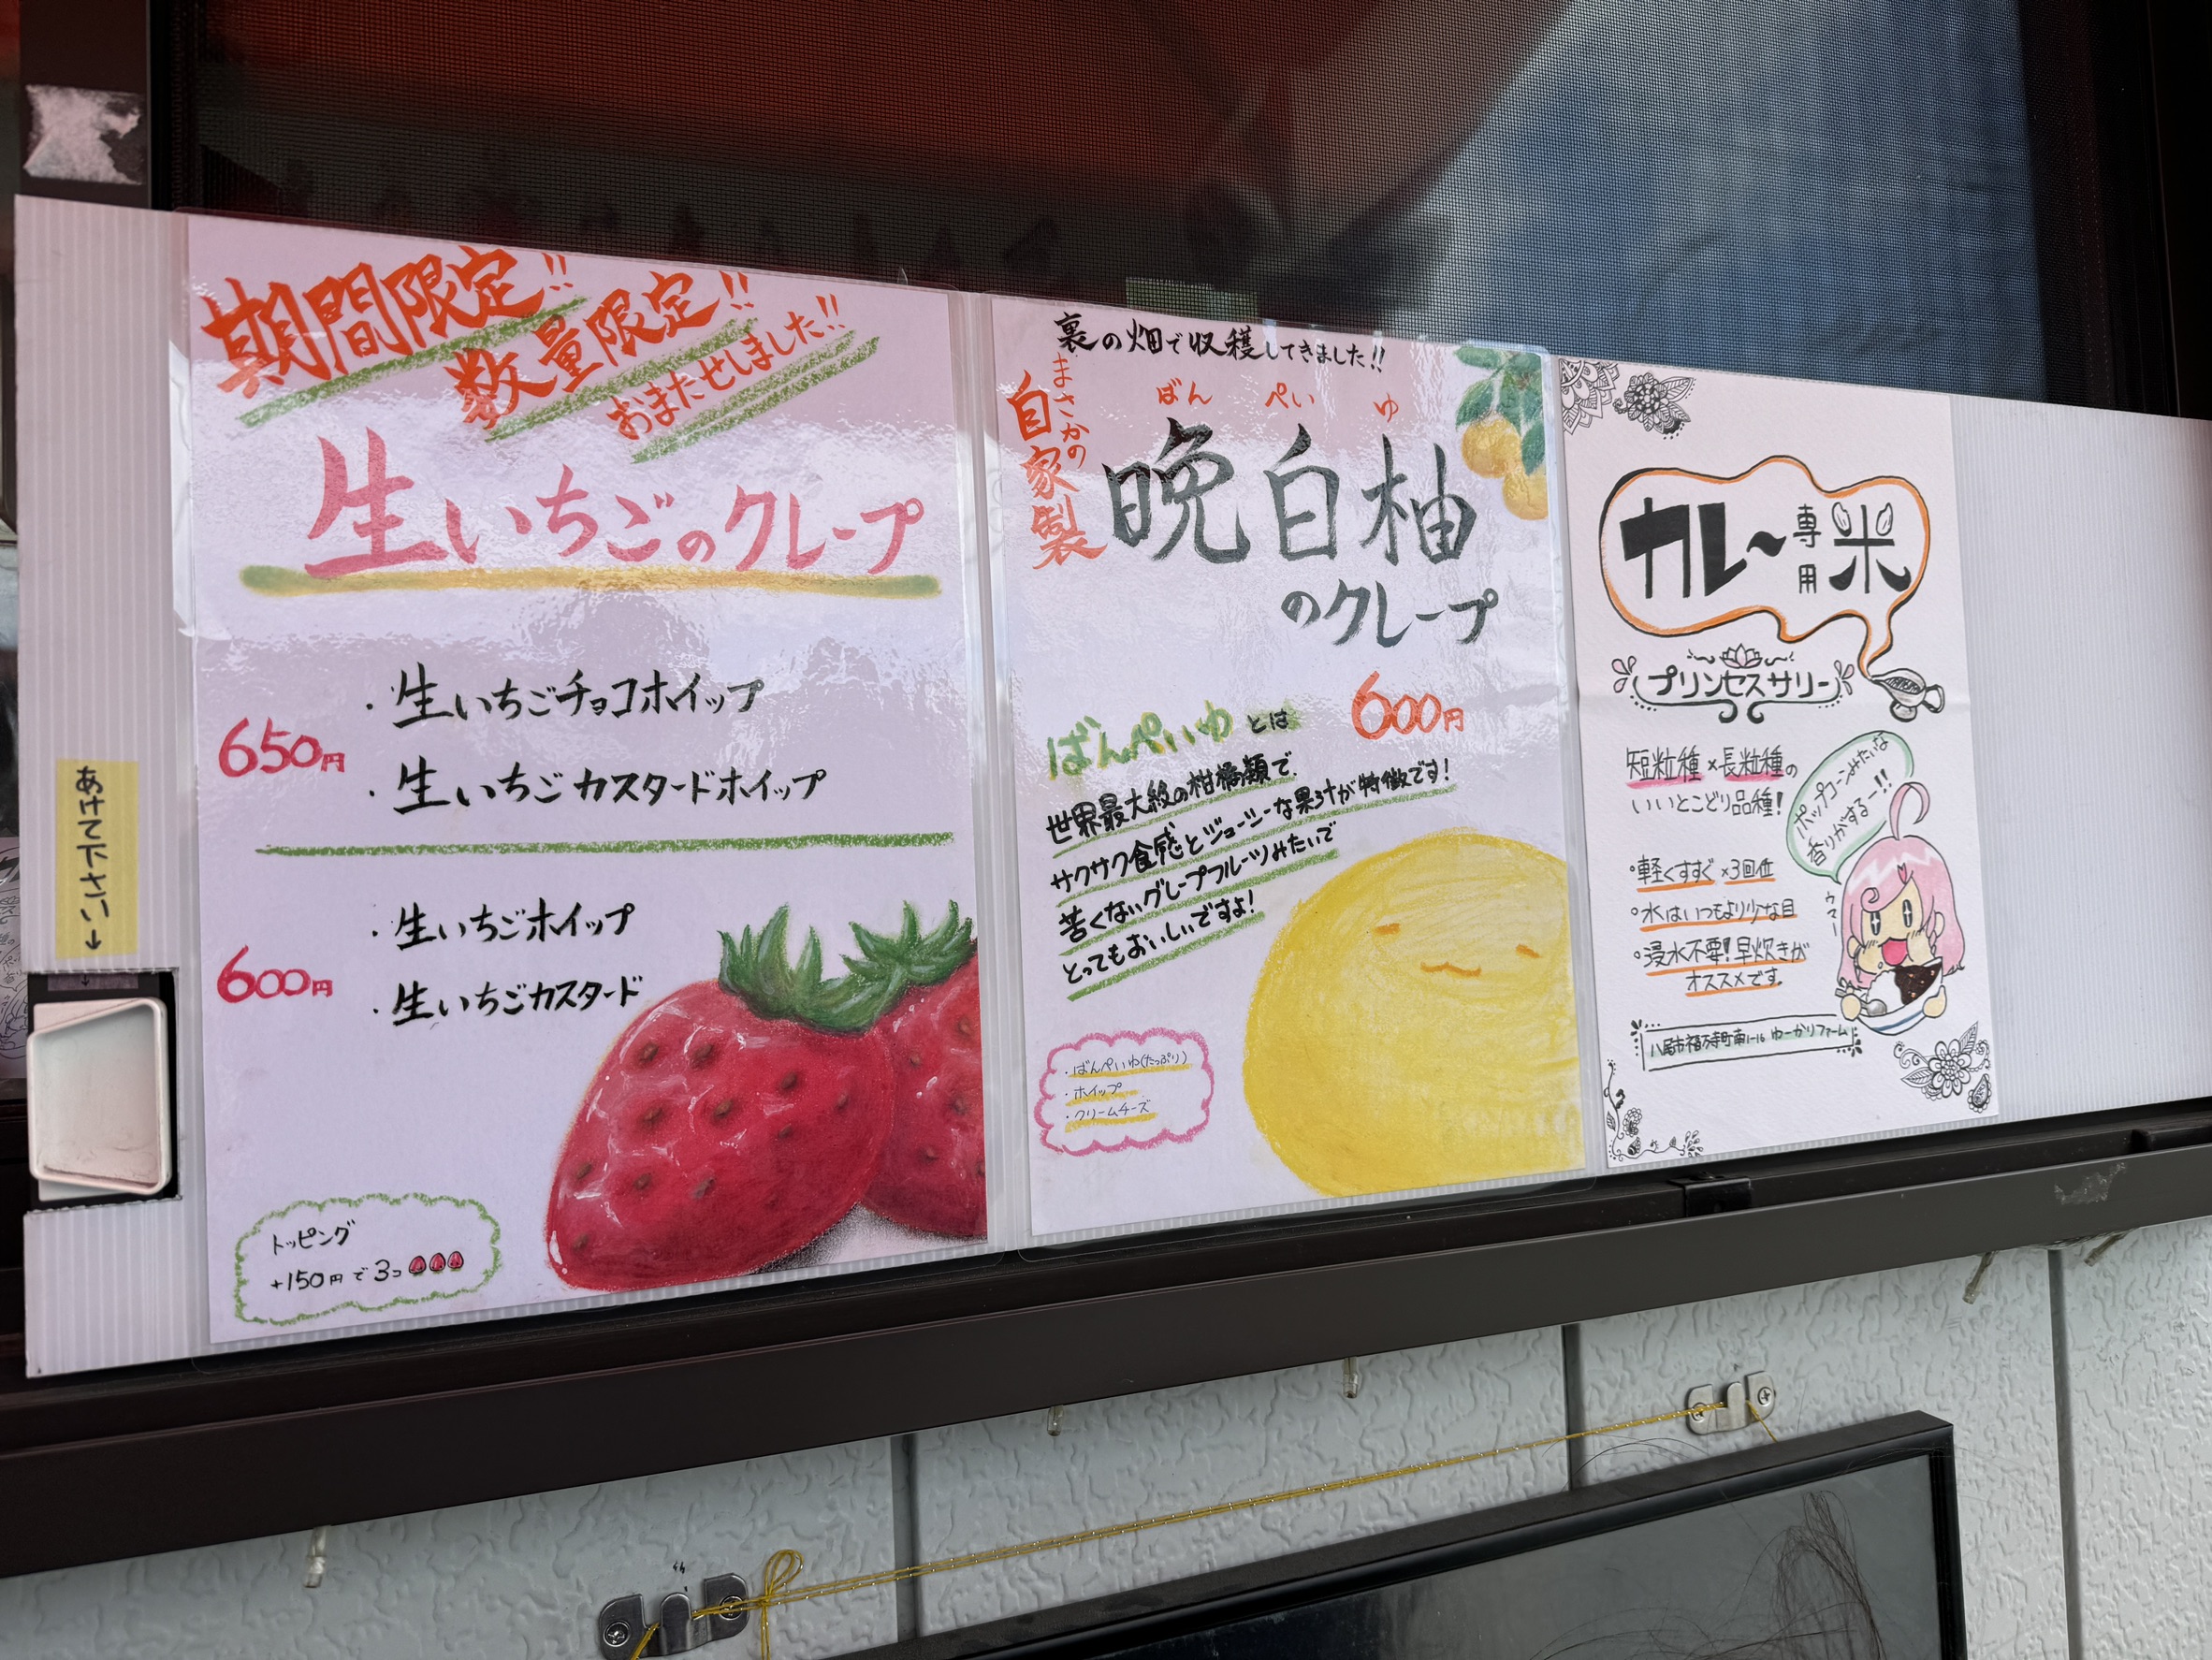 期間限定!!
数量限定!!
おまたせしました!!
生いちごのクレープ
650円
・生いちごチョコホイップ
・生いちごカスタードホイップ
600円
・生いちごホイップ
・生いちごカスタード
トッピング
+150円で3コ
あけて下さい↓
裏の畑で収穫してきました!!
まさかの
自家製
ばん ぺい ゆ
晩白柚
のクレープ
600円
ばんぺいゆとは
世界最大級の柑橘類で、
サクサク食感とジューシーな果汁が特徴です!
苦くないグレープフルーツみたいで
とってもおいしいですよ!
・ばんぺいゆ(たっぷり)
・ホイップ
・クリームチーズ
カレー専用米
プリンセスサリー
短粒種×長粒種の
いいとこどり品種!
ポップコーンみたいな
香りがするー!!
・軽くすすぐ×3回位
・水はいつもより少な目
・浸水不要!早炊きが
オススメです。
ウマー
八尾市福万寺町南1-16 ゆーかりファーム